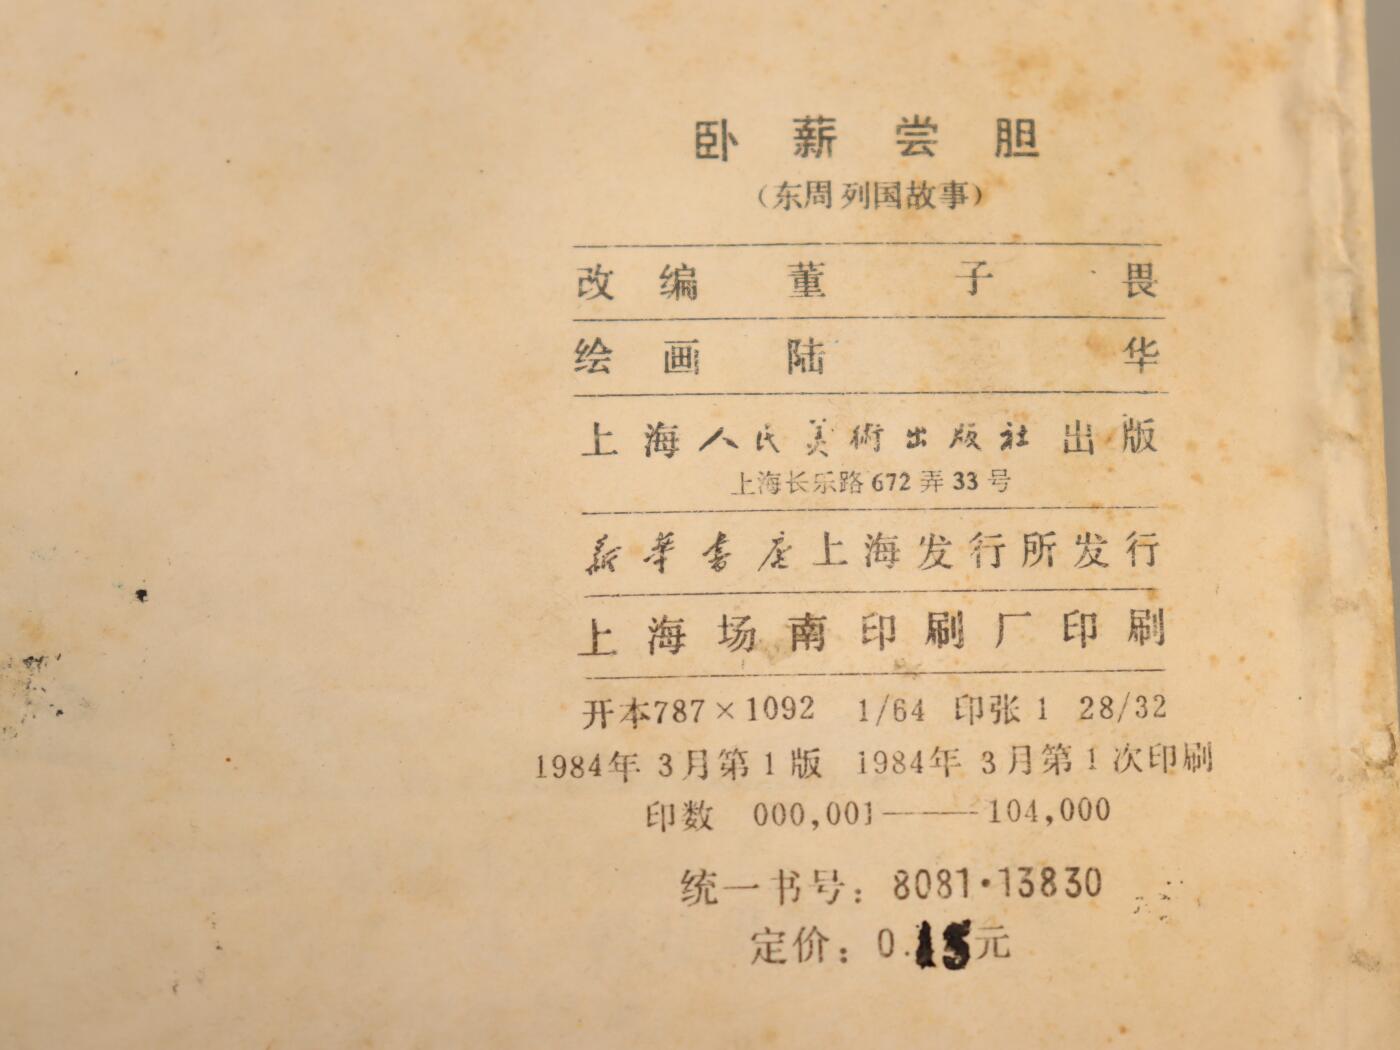 卧薪尝胆
（东周列国故事）
改编 董子畏
绘画 陆华
上海人民美術出版社出版
上海长乐路672弄33号
新華書店上海发行所发行
上海场南印刷厂印刷
开本787×1092 1/64 印张1 28/32
1984年3月第1版 1984年3月第1次印刷
印数 000,001——104,000
统一书号：8081·13830
定价：0.15元